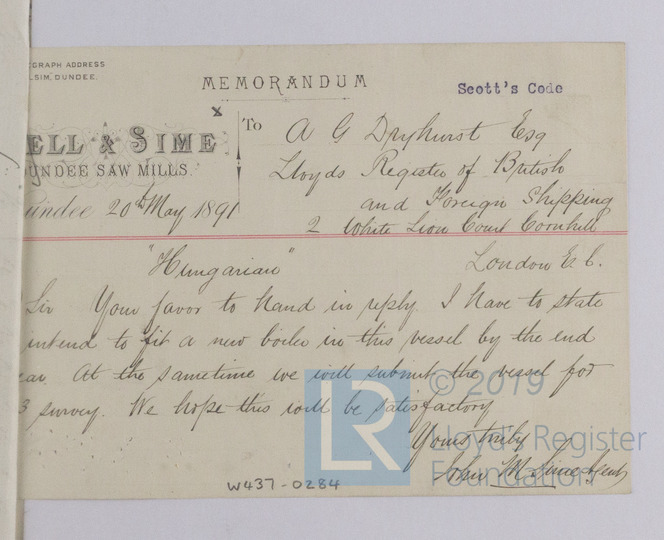 EGRAPH ADDRESS
LSIM, DUNDEE.
MEMORANDUM
Scott's Code
x
ELL & SIME
UNDEE SAW MILLS.
To
A G Dryhurst Esq
Lloyds Register of British
and Foreign Shipping
2 White Lion Court Cornhill
London E.C.
undee 20th May 1891
"Hungarian"
Sir Your favor to hand in reply. I have to state
intend to fit a new boiler in this vessel by the end
ear. At the sametime we will submit the vessel for
3 survey. We hope this will be satisfactory
Yours truly
John M Sime Agent
W437-0284
LR
© 2019
Lloyd's Register
Foundation